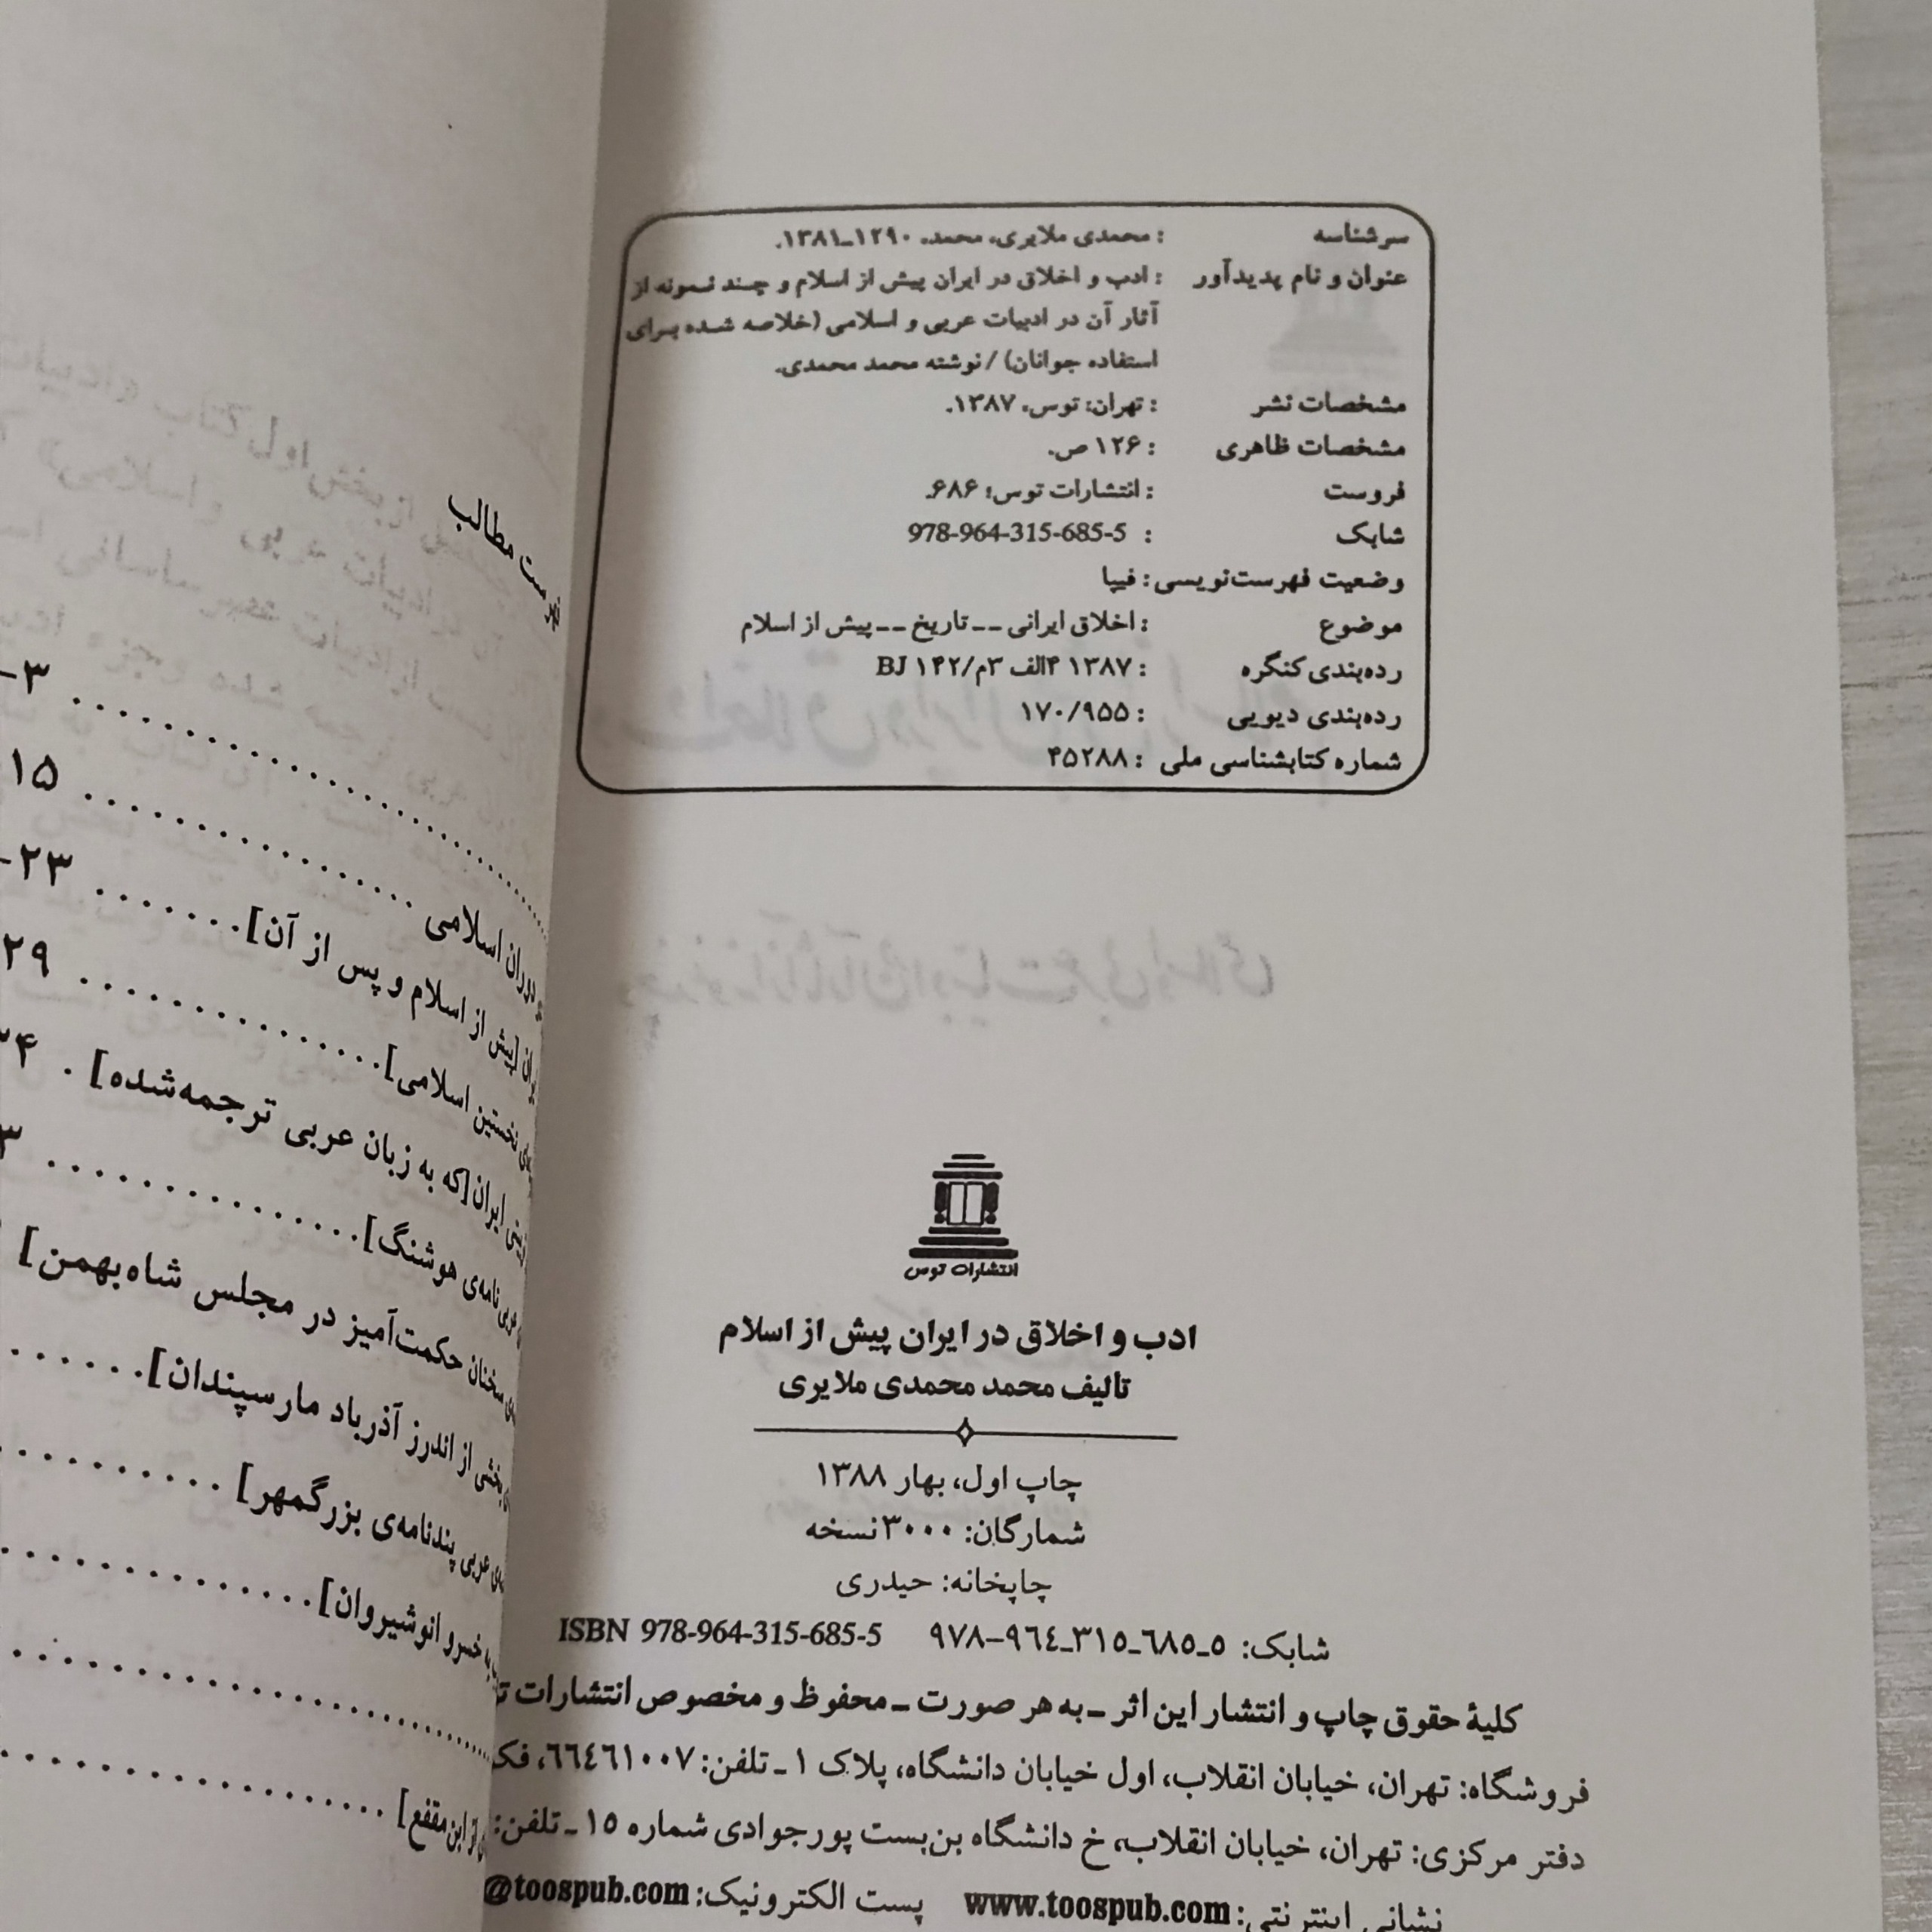 سرشناسه : محمدی ملایری، محمد، ۱۲۹۰ـ۱۳۸۱.
عنوان و نام پدیدآور : ادب و اخلاق در ایران پیش از اسلام و چند نمونه از
آثار آن در ادبیات عربی و اسلامی (خلاصه شده برای
استفاده جوانان) / نوشته محمد محمدی.
مشخصات نشر : تهران: توس، ۱۳۸۷.
مشخصات ظاهری : ۱۲۶ ص.
فروست : انتشارات توس؛ ۶۸۶.
شابک : 978-964-315-685-5
وضعیت فهرست‌نویسی : فیپا
موضوع : اخلاق ایرانی -- تاریخ -- پیش از اسلام
رده‌بندی کنگره : ۱۳۸۷ ۴الف ۳م/۱۴۲ BJ
رده‌بندی دیویی : ۱۷۰/۹۵۵
شماره کتابشناسی ملی : ۴۵۲۸۸
انتشارات توس
ادب و اخلاق در ایران پیش از اسلام
تألیف محمد محمدی ملایری
چاپ اول، بهار ۱۳۸۸
شمارگان: ۳۰۰۰ نسخه
چاپخانه: حیدری
شابک: ۵ـ۶۸۵ـ۳۱۵ـ۹۶۴–۹۷۸ ISBN 978-964-315-685-5
کلیهٔ حقوق چاپ و انتشار این اثر ـ به هر صورت ـ محفوظ و مخصوص انتشارات
فروشگاه: تهران، خیابان انقلاب، اول خیابان دانشگاه، پلاک ۱ ـ تلفن: ۶۶۴۶۱۰۰۷،
دفتر مرکزی: تهران، خیابان انقلاب، خ دانشگاه بن‌بست پورجوادی شماره ۱۵ ـ تلفن:
نشانی اینترنتی: www.toospub.com پست الکترونیک: @toospub.com
فهرست مطالب
۳-
دوران اسلامی ۱۵
[پیش از اسلام و پس از آن] ۲۳-
نخستین اسلامی] ۲۹
ایران [که به زبان عربی ترجمه‌شده] .
هوشنگ]
سخنان حکمت‌آمیز در مجلس شاه‌بهمن]
بخشی از اندرز آذرباد مارسپندان]
عربی پندنامه‌ی بزرگمهر]
خسرو انوشیروان]
از ابن مقفع]